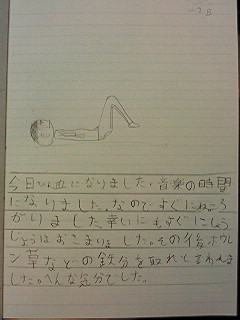 今日ひん血になりました。音楽の時間
になりました、なのですぐにねころ
がりました、幸いにもすぐにしょう
じょうはおさまりました。その後ホウレ
ン草などの鉄分を取れと言われま
した。へんな気分でした。